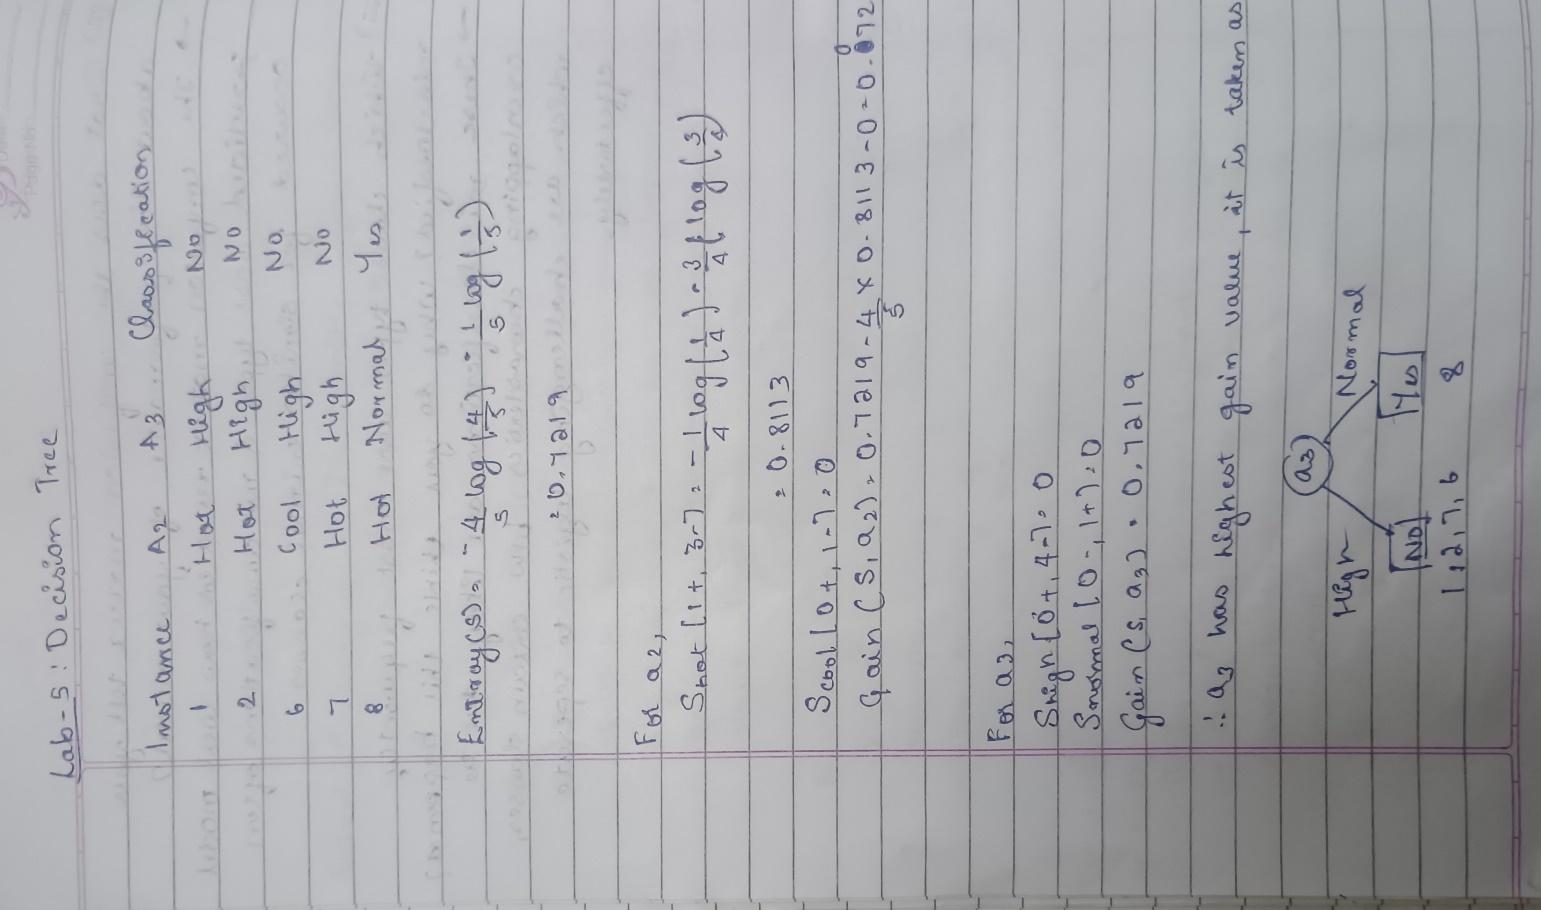 Lab-5: Decision Tree
Instance A2 A3 Classification
1 Hot High No
2 Hot High No
6 Cool High No
7 Hot High No
8 Hot Normal Yes
Entropy(S) = -4/5 log(4/5) - 1/5 log(1/5)
= 0.7219
For a2,
Shot [1+, 3-] = -1/4 log(1/4) - 3/4 log(3/4)
= 0.8113
Scool [0+, 1-] = 0
Gain(S, a2) = 0.7219 - 4/5 x 0.8113 - 0 = 0.072
For a3,
Shigh [0+, 4-] = 0
Snormal [0-, 1+] = 0
Gain(S, a3) = 0.7219
∴ a3 has highest gain value, it is taken as
a3
High Normal
No Yes
1,2,7,6 8